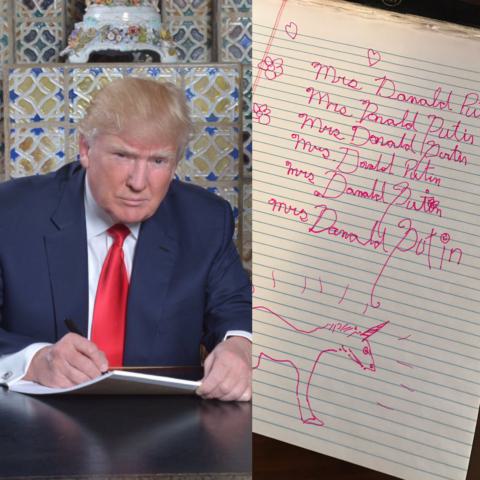 Mrs Danald Pu
Mrs Donald Putin
Mrs Donald Putin
Mrs Donald Putin
Mrs Danald Putin
Mrs Danald Putin